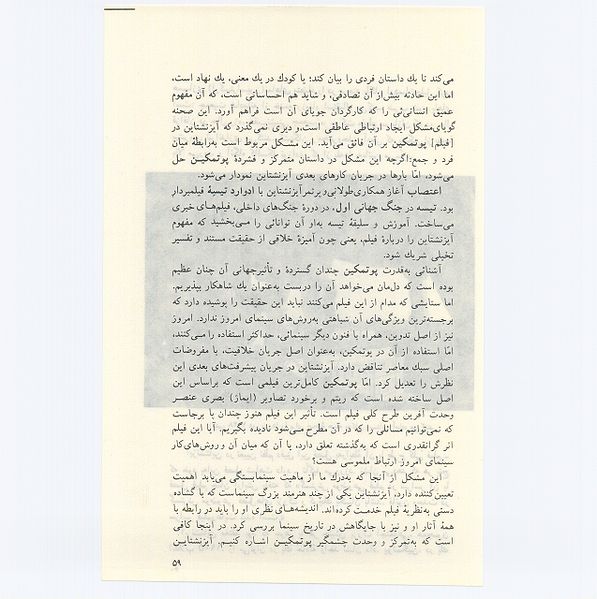 می‌کند تا یك داستان فردی را بیان کند؛ یا کودك در یك معنی، یك نهاد است،
اما این حادثه بیش‌از آن تصادفی، و شاید هم احساساتی است، که آن مفهوم
عمیق انسانی‌ئی را که کارگردان جویای آن است فراهم آورد. این صحنه
گویای‌مشکل ایجاد ارتباطی عاطفی است، و دیری نمی‌گذرد که آیزنشتاین در
[فیلم] پوتمکین بر آن فائق می‌آید. این مشکل مربوط است به‌رابطهٔ میان
فرد و جمع؛ اگرچه این مشکل در داستان متمرکز و فشردهٔ پوتمکین حل
می‌شود، امّا بارها در جریان کارهای بعدی آیزنشتاین نمودار می‌شود.
اعتصاب آغاز همکاری‌طولانی‌و پرثمر آیزنشتاین با ادوارد تیسهٔ فیلمبردار
بود. تیسه در جنگ جهانی اول، در دورهٔ جنگ‌های داخلی، فیلم‌های خبری
می‌ساخت. آموزش و سلیقهٔ تیسه به‌او آن توانائی را می‌بخشید که مفهوم
آیزنشتاین را دربارهٔ فیلم، یعنی چون آمیزهٔ خلاقی از حقیقت مستند و تفسیر
تخیلی شریك شود.
آشنائی به‌قدرت پوتمکین چندان گسترده و تأثیرجهانی آن چنان عظیم
بوده است که دل‌مان می‌خواهد آن را دربست به‌عنوان یك شاهکار بپذیریم.
اما ستایشی که مدام از این فیلم می‌کنند نباید این حقیقت را پوشیده دارد که
برجسته‌ترین ویژگی‌های آن شباهتی به‌روش‌های سینمای امروز ندارد. امروز
نیز از اصل تدوین، همراه با فنون دیگر سینمائی، حداکثر استفاده را می‌کنند،
امّا استفاده از آن در پوتمکین، به‌عنوان اصل جریان خلاقیت، با مفروضات
اصلی سبك معاصر تناقض دارد. آیزنشتاین در جریان پیشرفت‌های بعدی این
نظرش را تعدیل کرد. امّا پوتمکین کامل‌ترین فیلمی است که براساس این
اصل ساخته شده است که ریتم و برخورد تصاویر (ایماژ) بصری عنصر
وحدت آفرین طرح کلی فیلم است. تأثیر این فیلم هنوز چندان پا برجاست
که نمی‌توانیم مسائلی را که در آن مطرح می‌شود نادیده بگیریم. آیا این فیلم
اثر گرانقدری است که به‌گذشته تعلق دارد، یا آن که میان آن و روش‌های‌کار
سینمای امروز ارتباط ملموسی هست؟
این مشکل از آنجا که به‌درك ما از ماهیت سینما‌بستگی می‌یابد اهمیت
تعیین‌کننده دارد. آیزنشتاین یکی از چند هنرمند بزرگ سینماست که با گشاده
دستی به‌نظریهٔ فیلم خدمت کرده‌اند. اندیشه‌های نظری او را باید در رابطه با
همهٔ آثار او و نیز با جایگاهش در تاریخ سینما بررسی کرد. در اینجا کافی
است که به‌تمرکز و وحدت چشمگیر پوتمکین اشاره کنیم. آیزنشتاین
۵۹